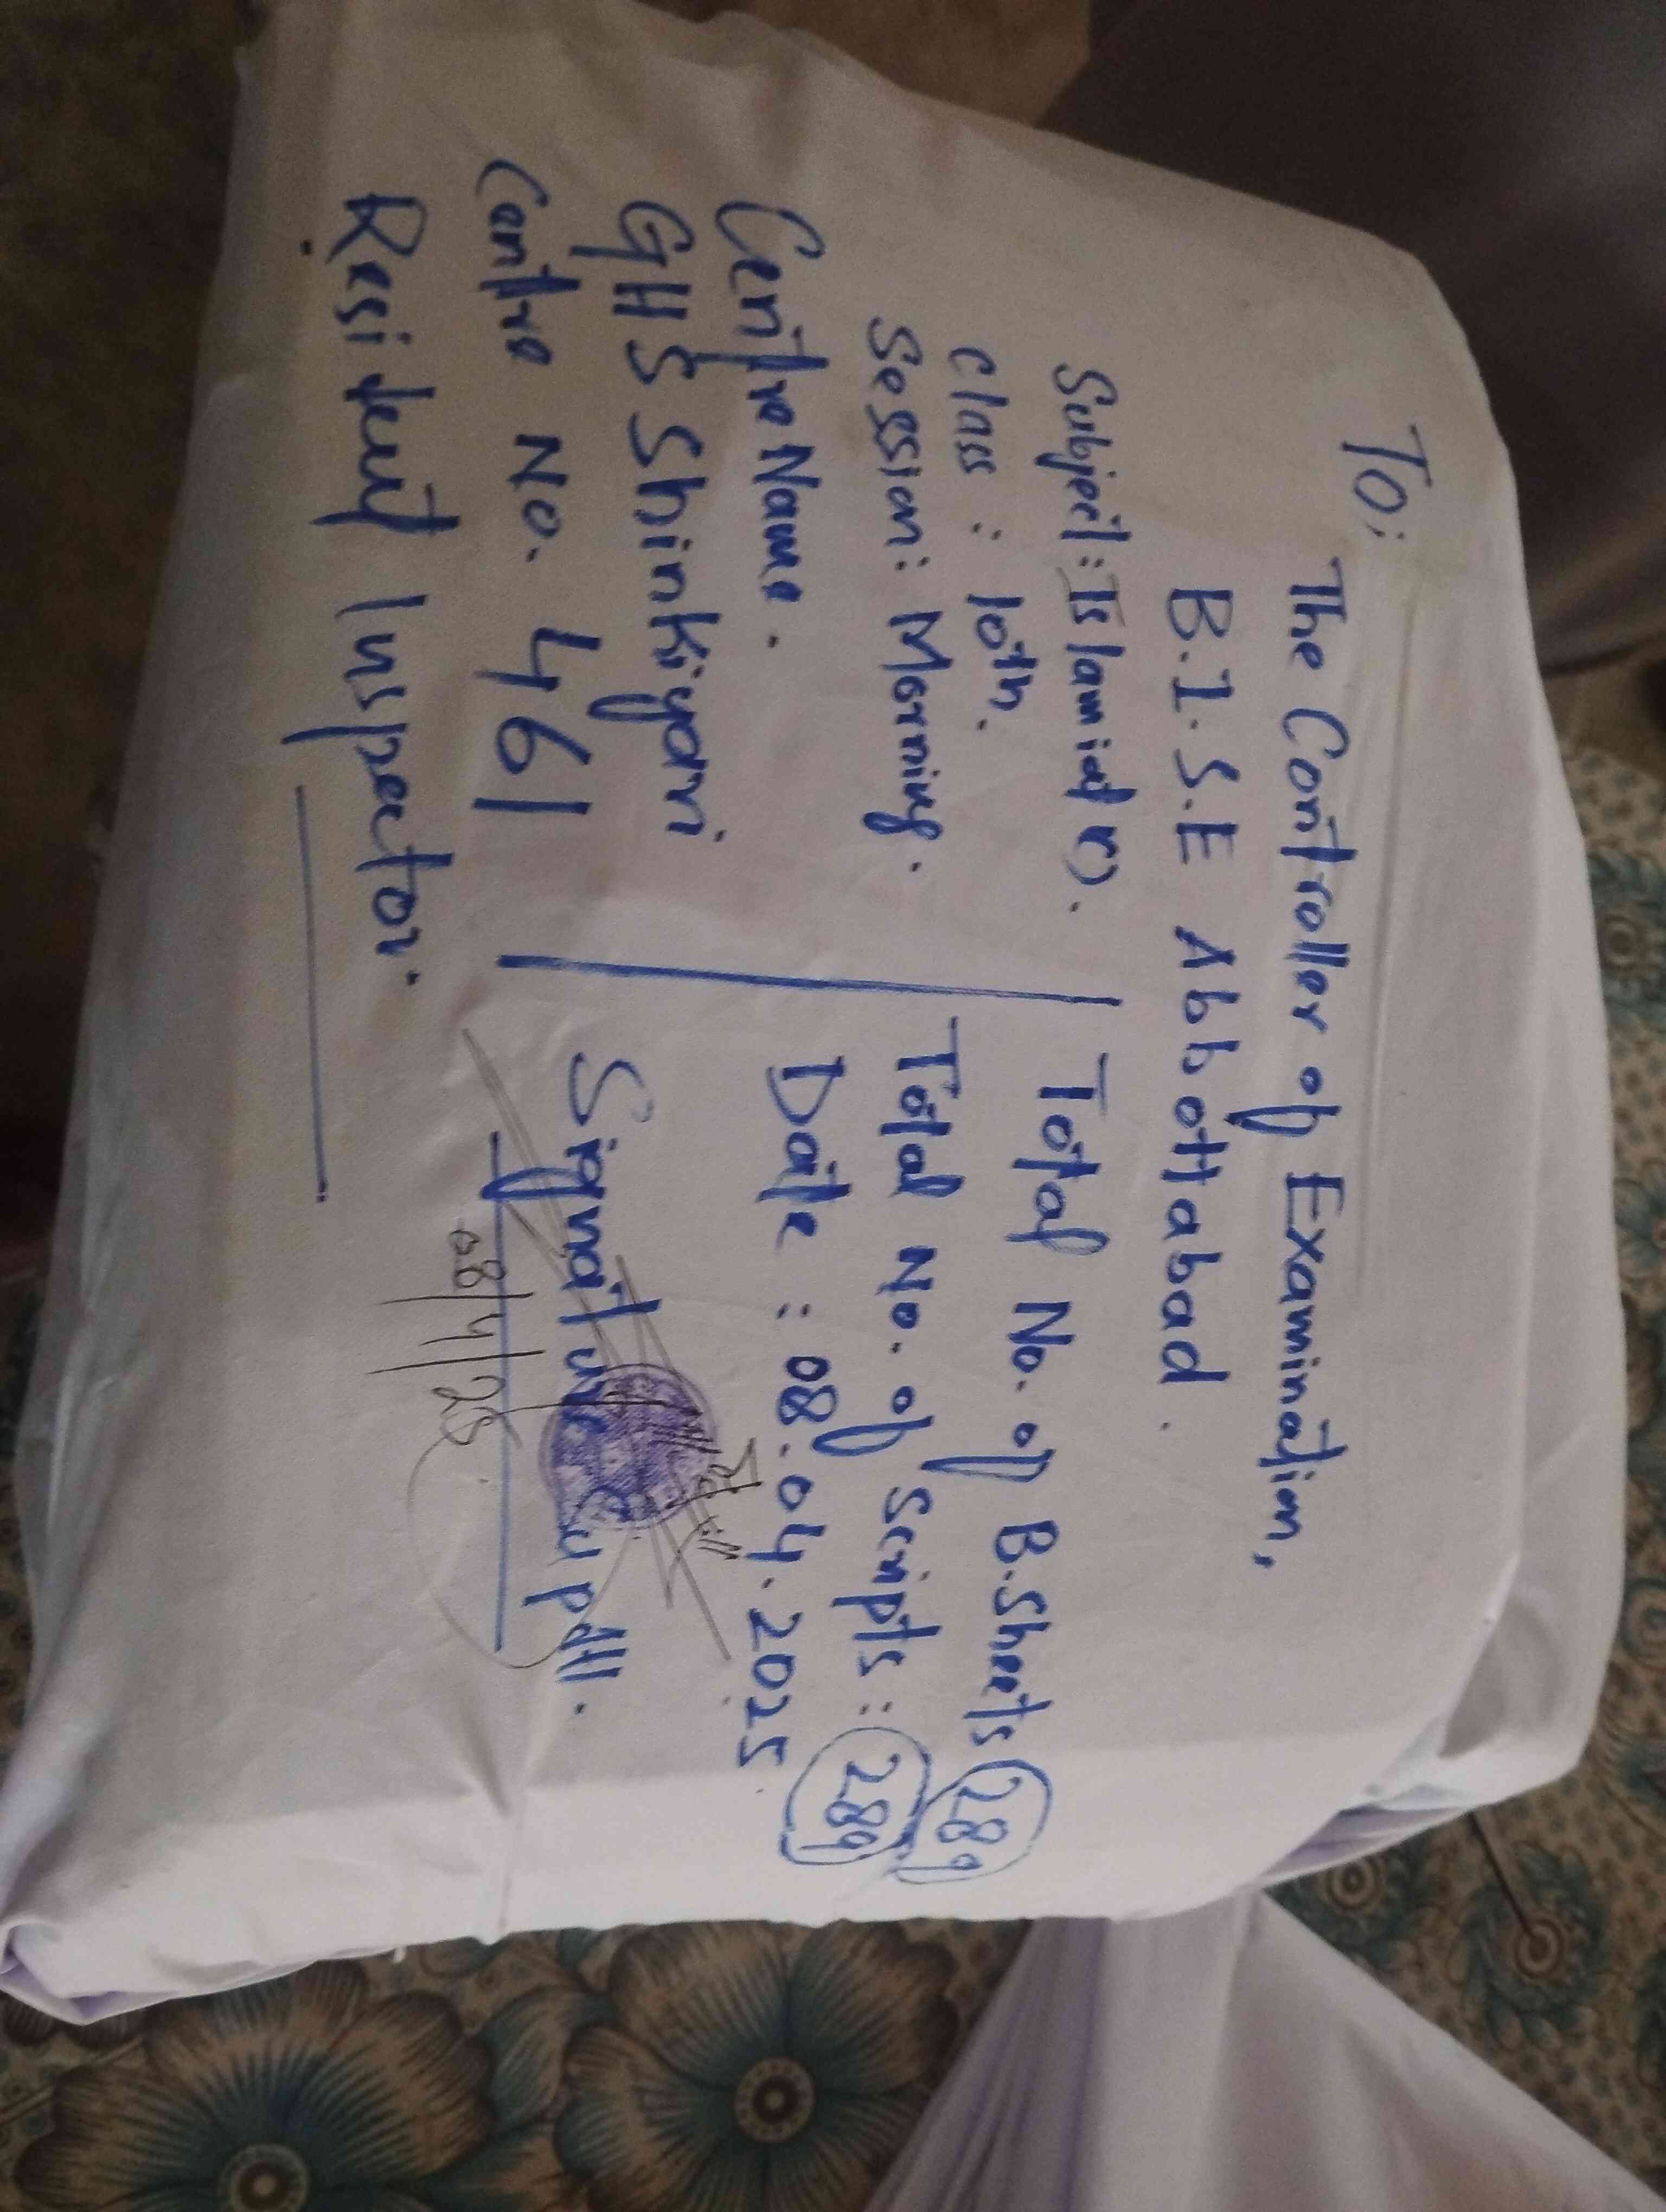 To:
The Controller of Examination,
B.I.S.E Abbottabad.
Subject: Islamiat (C).
Class: 10th.
Session: Morning.
Centre Name.
GHS Shinkiyari
Centre No. 461
Resident Inspector.
Total No. of B.Sheets 289
Total No. of Scripts: 289
Date: 08.04.2025
Signature
08/4/25